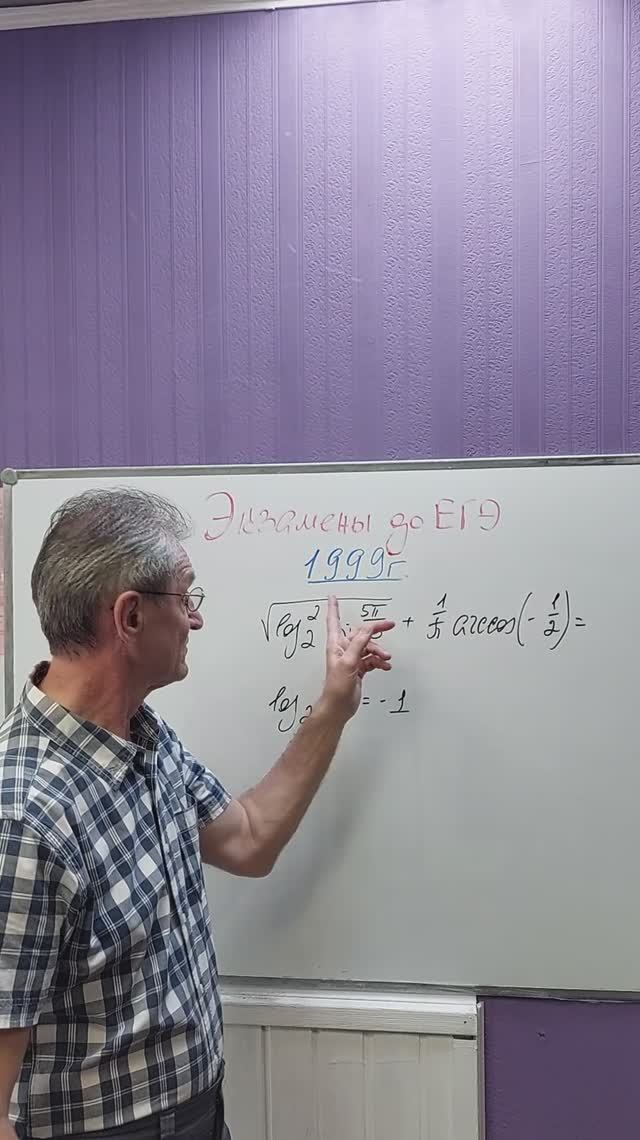 Экзамены до ЕГЭ
1999г.
√log₂² 5π + 1/π arccos(-1/2) =
log₂ = -1